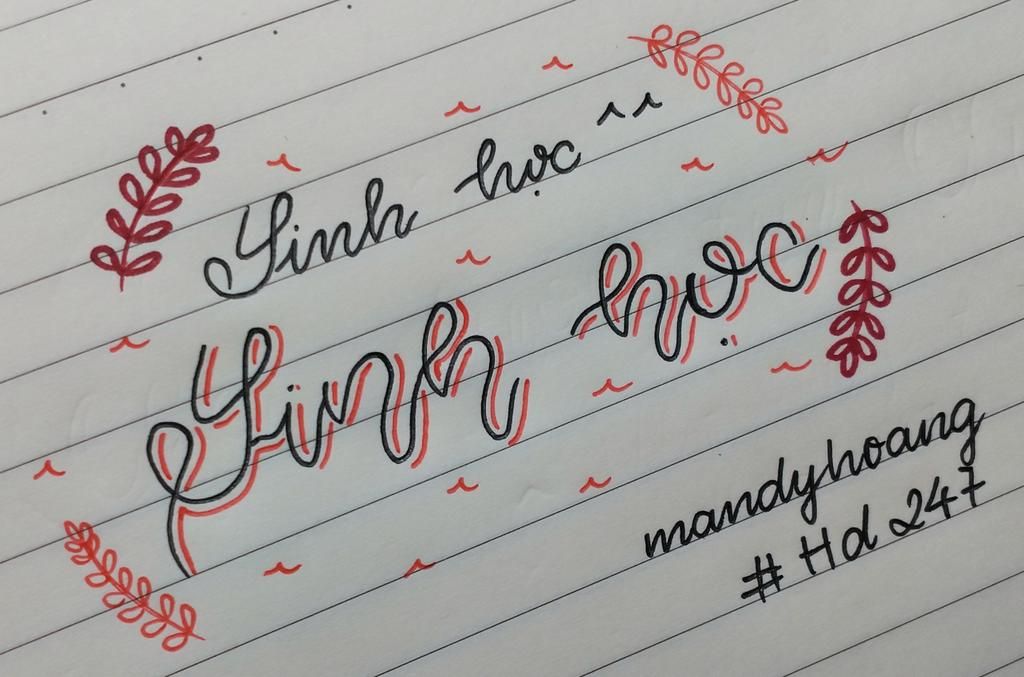 Sinh học ^^
Sinh học
mandyhoang
# Hd 247